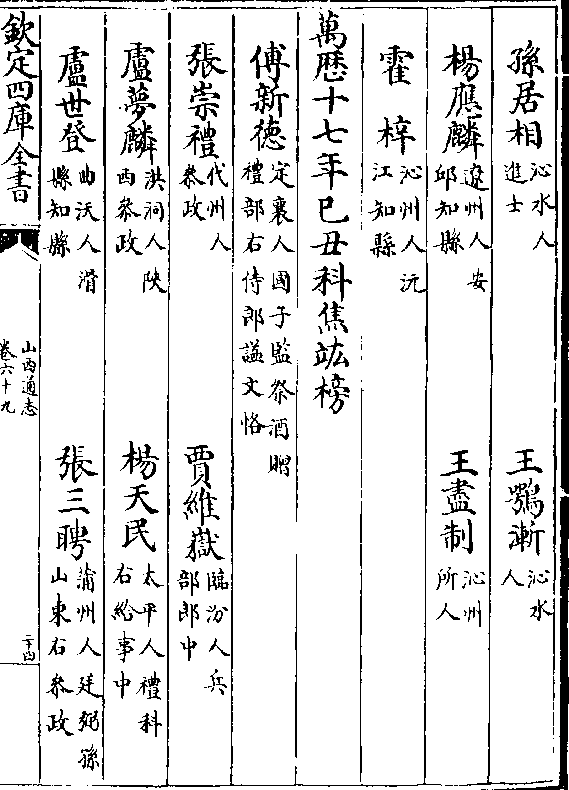 孫居相 沁水人進士 王鶚漸 沁水人
楊應麟 遼州人安邱知縣 王盡制 沁州所人
霍梓 沁州人沅江知縣
萬歷十七年己丑科焦竑榜
傅新德 定襄人國子監祭酒贈禮部右侍郎謚文恪
張崇禮 代州人叅政 賈維嶽 臨汾人兵部郎中
盧夢麟 洪洞人陜西叅政 楊天民 太平人禮科右給事中
盧世登 曲沃人滑縣知縣 張三聘 蒲州人廷弼孫山東右叅政
欽定四庫全書 山西通志卷六十九 二十四